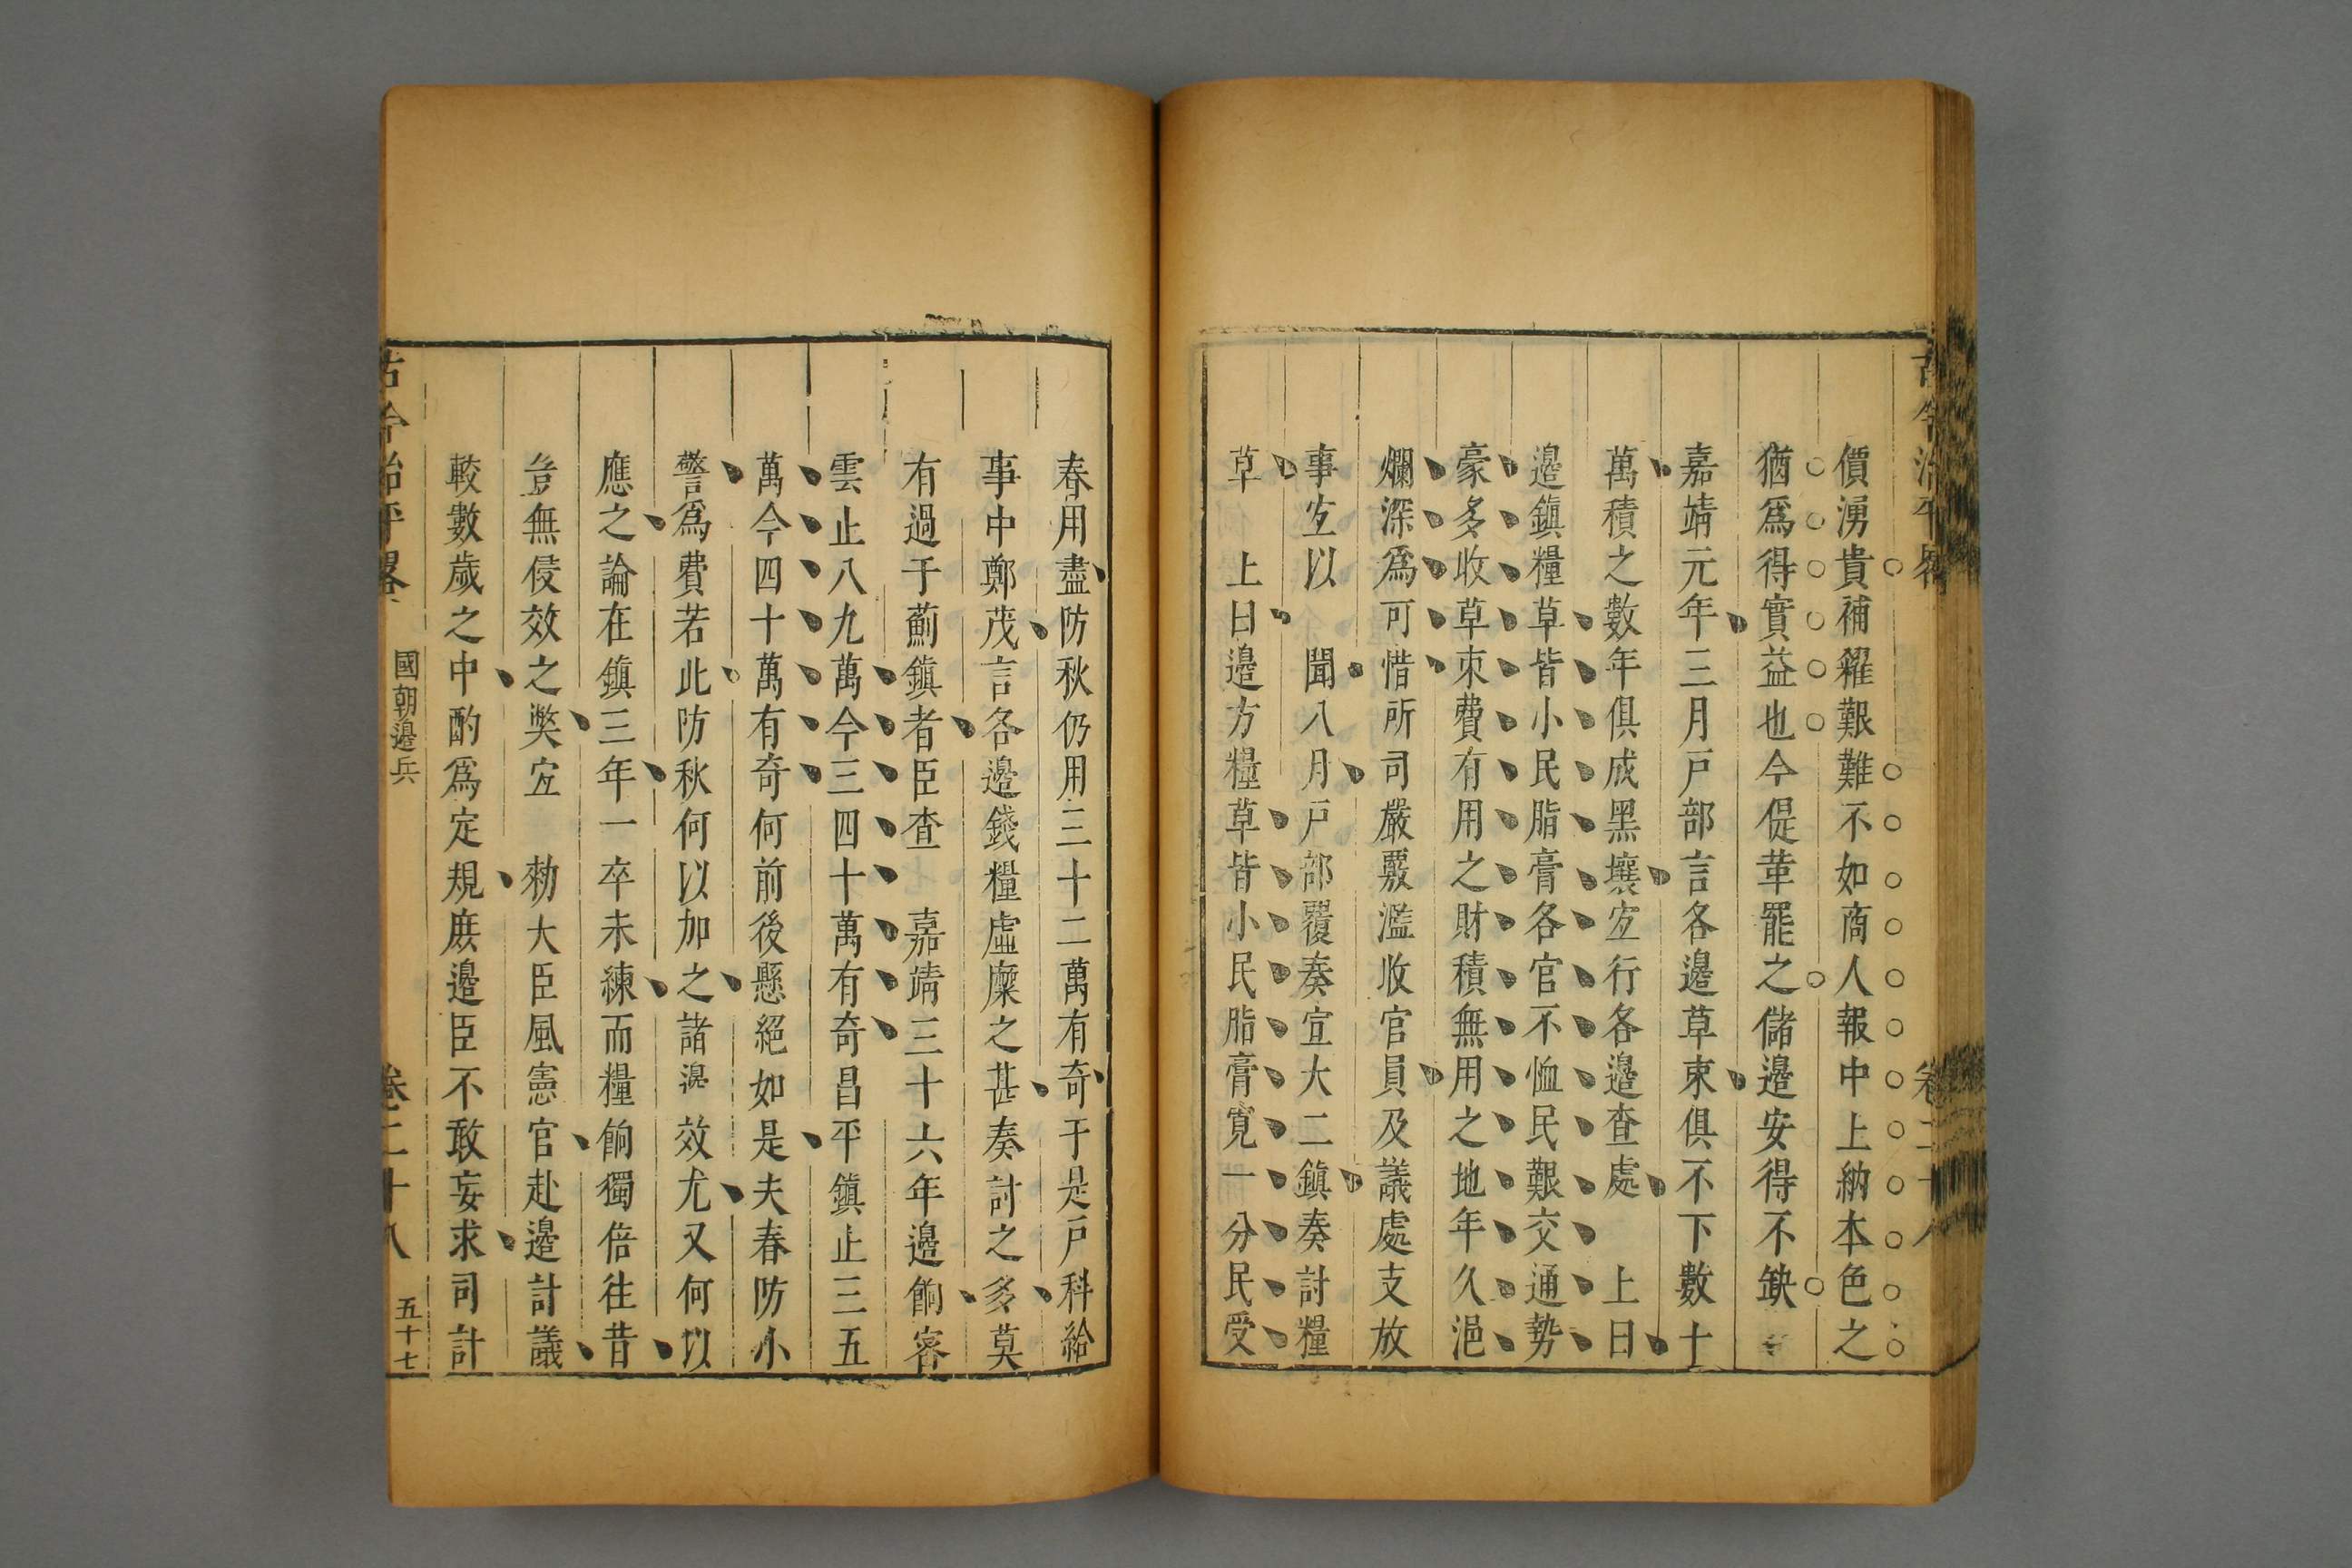 古今治平畧 卷二十八
價湧貴補糴艱難不如商人報中上納本色之
猶爲得實益也今偍革罷之儲邊安得不缺
嘉靖元年三月戸部言各邊草束俱不下數十
萬積之數年俱成黑壤宐行各邊查處 上曰
邊鎮糧草皆小民脂膏各官不恤民艱交通勢
豪多收草束費有用之財積無用之地年久浥
爛深爲可惜所司嚴覈濫收官員及議處支放
事宐以 聞八月戸部覆奏宣大二鎮奏討糧
草 上曰邊方糧草皆小民脂膏寬一分民受
春用盡防秋仍用三十二萬有奇于是戸科給
事中鄭茂言各邊錢糧虛糜之甚奏討之多莫
有過于薊鎮者臣查 嘉靖三十六年邊餉密
雲止八九萬今三四十萬有奇昌平鎮止三五
萬今四十萬有奇何前後懸絕如是夫春防小
警爲費若此防秋何以加之諸邊效尤又何以
應之論在鎮三年一卒未練而糧餉獨倍往昔
豈無侵效之獘宐 勑大臣風憲官赴邊計議
較數歲之中酌爲定規庶邊臣不敢妄求司計
古今治平畧 國朝邊兵 卷二十八 五十七